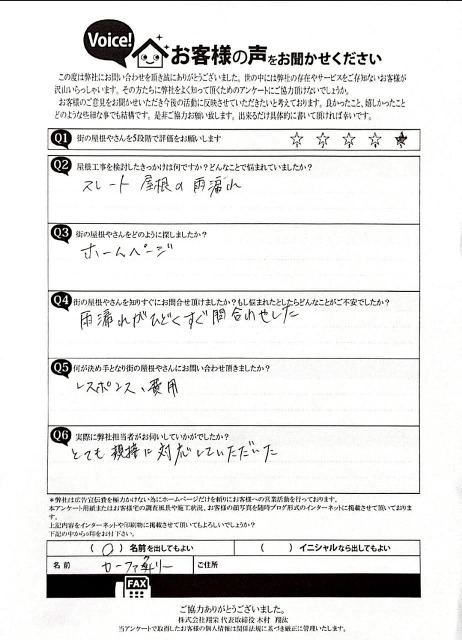 Voice!
お客様の声をお聞かせください
この度は弊社にお問い合わせを頂き誠にありがとうございました。世の中には弊社の存在やサービスをご存知ないお客様が
沢山いらっしゃいます。その方たちに弊社をよく知って頂くためのアンケートにご協力頂けないでしょうか。
お客様のご意見をお聞かせいただき今後の活動に反映させていただきたいと考えております。良かったこと、嬉しかったこと
どのような些細な事でも結構です。是非ご協力お願い致します。出来るだけ具体的に書いて頂ければ幸いです。
Q1 街の屋根やさんを5段階で評価をお願いします ☆ ☆ ☆ ☆ ★
Q2 屋根工事を検討したきっかけは何ですか?どんなことで悩まれていましたか?
スレート屋根の雨漏れ
Q3 街の屋根やさんをどのように探しましたか?
ホームページ
Q4 街の屋根やさんを知りすぐにお問合せ頂けましたか?もし悩まれたとしたらどんなことがご不安でしたか?
雨漏れがひどくすぐ問合わせした
Q5 何が決め手となり街の屋根やさんにお問い合わせ頂きましたか?
レスポンス、費用
Q6 実際に弊社担当者がお伺いしていかがでしたか?
とても親接に対応していただいた
*弊社は広告宣伝費を極力かけない為にホームページだけを頼りにお客様への営業活動を行っております。
本アンケート用紙またはお客様宅の調査風景や施工状況、お客様の顔写真を随時ブログ形式のインターネットに掲載させて頂いておりま
す。
上記内容をインターネットや印刷物に掲載させて頂いてもよろしいでしょうか?
下記の中から○印をお付け下さい。
(○)名前を出してもよい ( )イニシャルなら出してもよい
名前 ご住所
FAX
ご協力ありがとうございました。
株式会社翔栄 代表取締役 木村 翔汰
当アンケートで取得したお客様の個人情報は関係法規に基づき厳正に管理いたします。